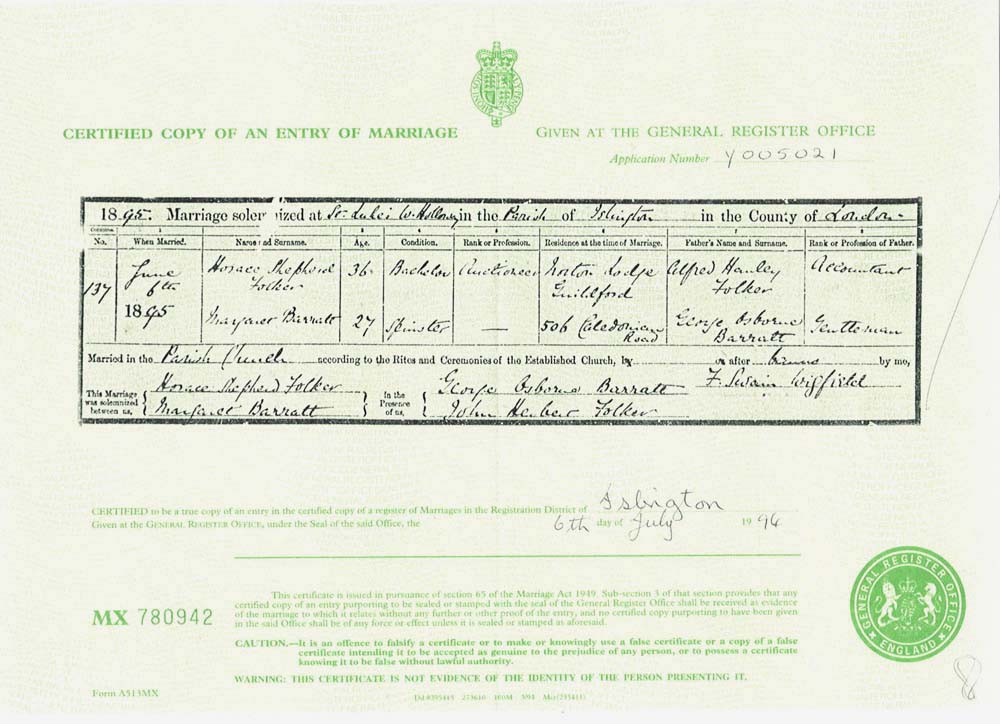 CERTIFIED COPY OF AN ENTRY OF MARRIAGE
GIVEN AT THE GENERAL REGISTER OFFICE
Application Number Y005021
1895. Marriage solemnized at St. Luke's W. Holloway in the Parish of Islington in the County of London
Columns:—
No. When Married. Name and Surname. Age. Condition. Rank or Profession. Residence at the time of Marriage. Father's Name and Surname. Rank or Profession of Father.
137 June 6th 1895
Horace Shepherd Folker 36 Bachelor Auctioneer Norton Lodge Guildford Alfred Hanley Folker Accountant
Margaret Barratt 27 Spinster — 506 Caledonian Road George Osborne Barratt Gentleman
Married in the Parish Church according to the Rites and Ceremonies of the Established Church, by or after banns by me,
This Marriage was solemnized between us, { Horace Shepherd Folker
Margaret Barratt }
In the Presence of us, { George Osborne Barratt
John Herbert Folker }
F. Swain Wigfield
CERTIFIED to be a true copy of an entry in the certified copy of a register of Marriages in the Registration District of Islington
Given at the GENERAL REGISTER OFFICE, under the Seal of the said Office, the 6th day of July 1994
MX 780942
This certificate is issued in pursuance of section 65 of the Marriage Act 1949. Sub-section 3 of that section provides that any
certified copy of an entry purporting to be sealed or stamped with the seal of the General Register Office shall be received as evidence
of the marriage to which it relates without any further or other proof of the entry, and no certified copy purporting to have been given
in the said Office shall be of any force or effect unless it is sealed or stamped as aforesaid.
CAUTION.—It is an offence to falsify a certificate or to make or knowingly use a false certificate or a copy of a false
certificate intending it to be accepted as genuine to the prejudice of any person, or to possess a certificate
knowing it to be false without lawful authority.
WARNING: THIS CERTIFICATE IS NOT EVIDENCE OF THE IDENTITY OF THE PERSON PRESENTING IT.
GENERAL REGISTER OFFICE
ENGLAND
Form A513MX
8